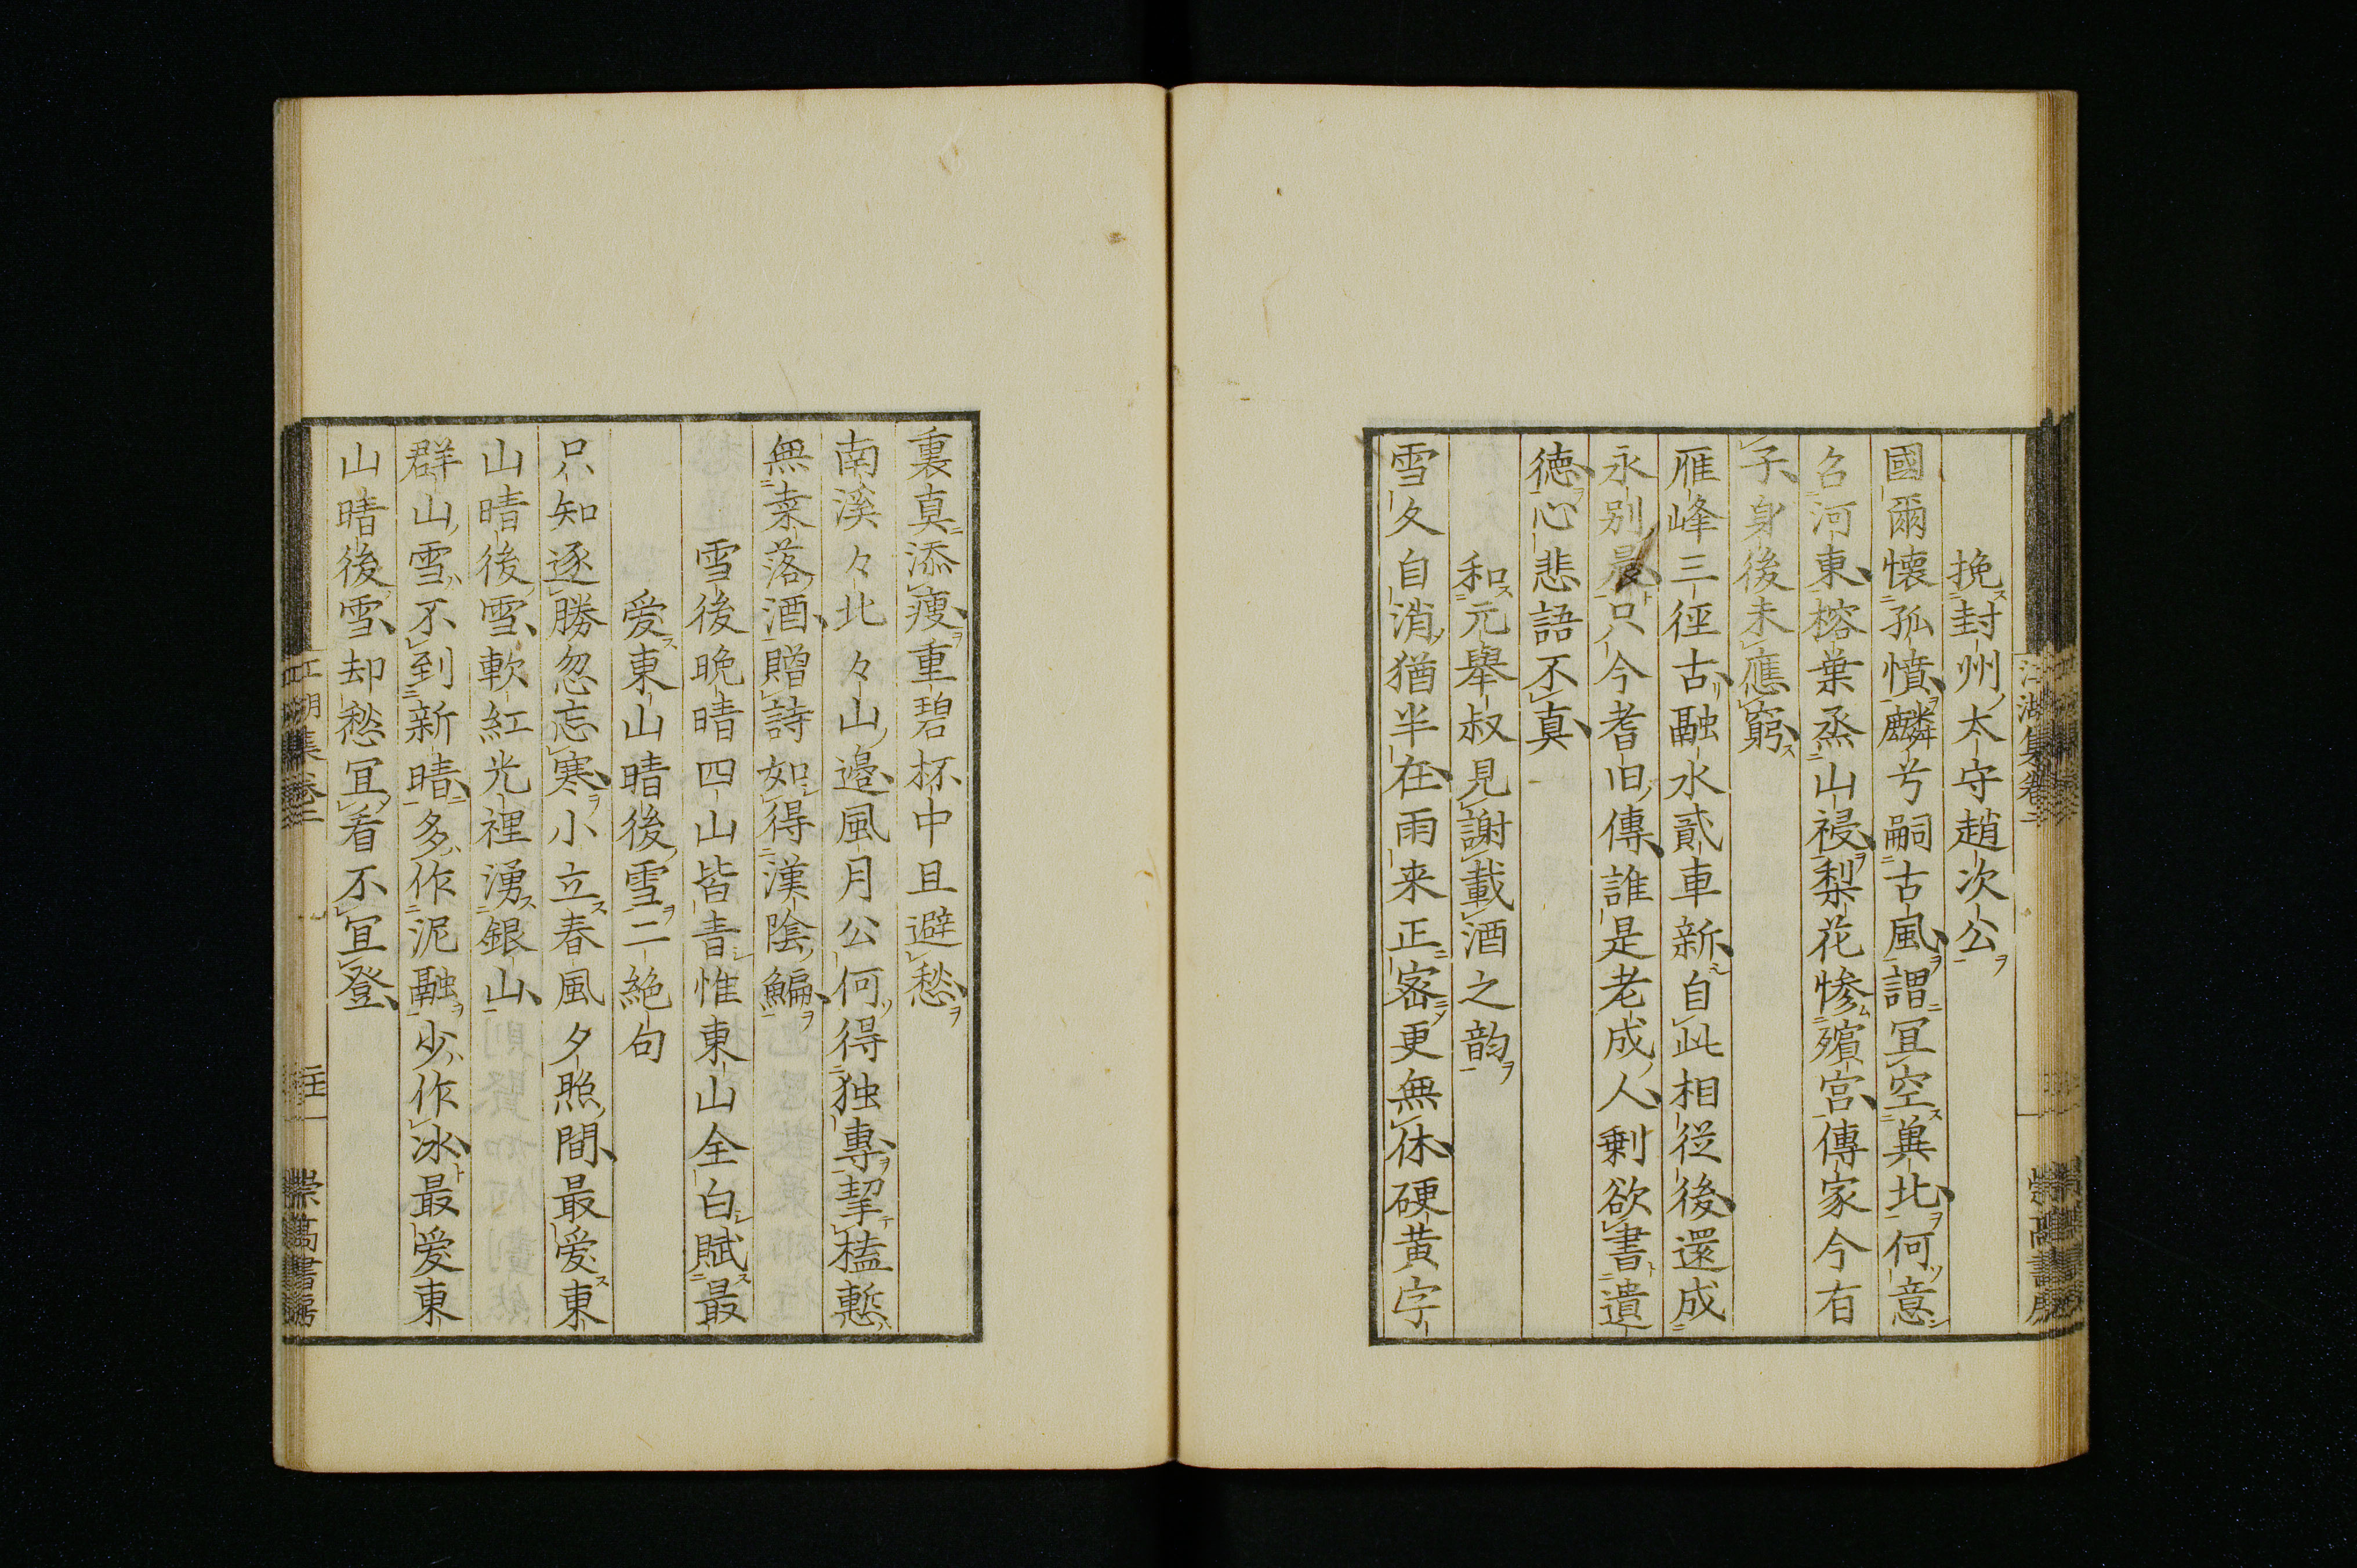 挽封州太守趙次公
國爾懐孤憤麟兮嗣古風謂冝空冀北何意
召河東榕葉烝山祲梨花惨殯宮傳家今有
子身後未應窮
雁峰三徑古融水貳車新自此相從後還成
永別晨只今耆旧傳誰是老成人剩欲書遺
徳心悲語不真
和元舉叔見謝載酒之韵
雪久自消猶半在雨来正密更無休硬黄字
裏真添痩重碧杯中且避愁
南溪々北々山邉風月公何得独專挈榼慙
無桒落酒贈詩如得漢陰鯿
雪後晩晴四山皆青惟東山全白賦最
爱東山晴後雪二絶句
只知逐勝忽忘寒小立春風夕照間最爱東
山晴後雪軟紅光裡湧銀山
群山雪不到新晴多作泥融少作冰最爱東
山晴後雪却愁冝看不冝登
江湖集卷二
崇高書房